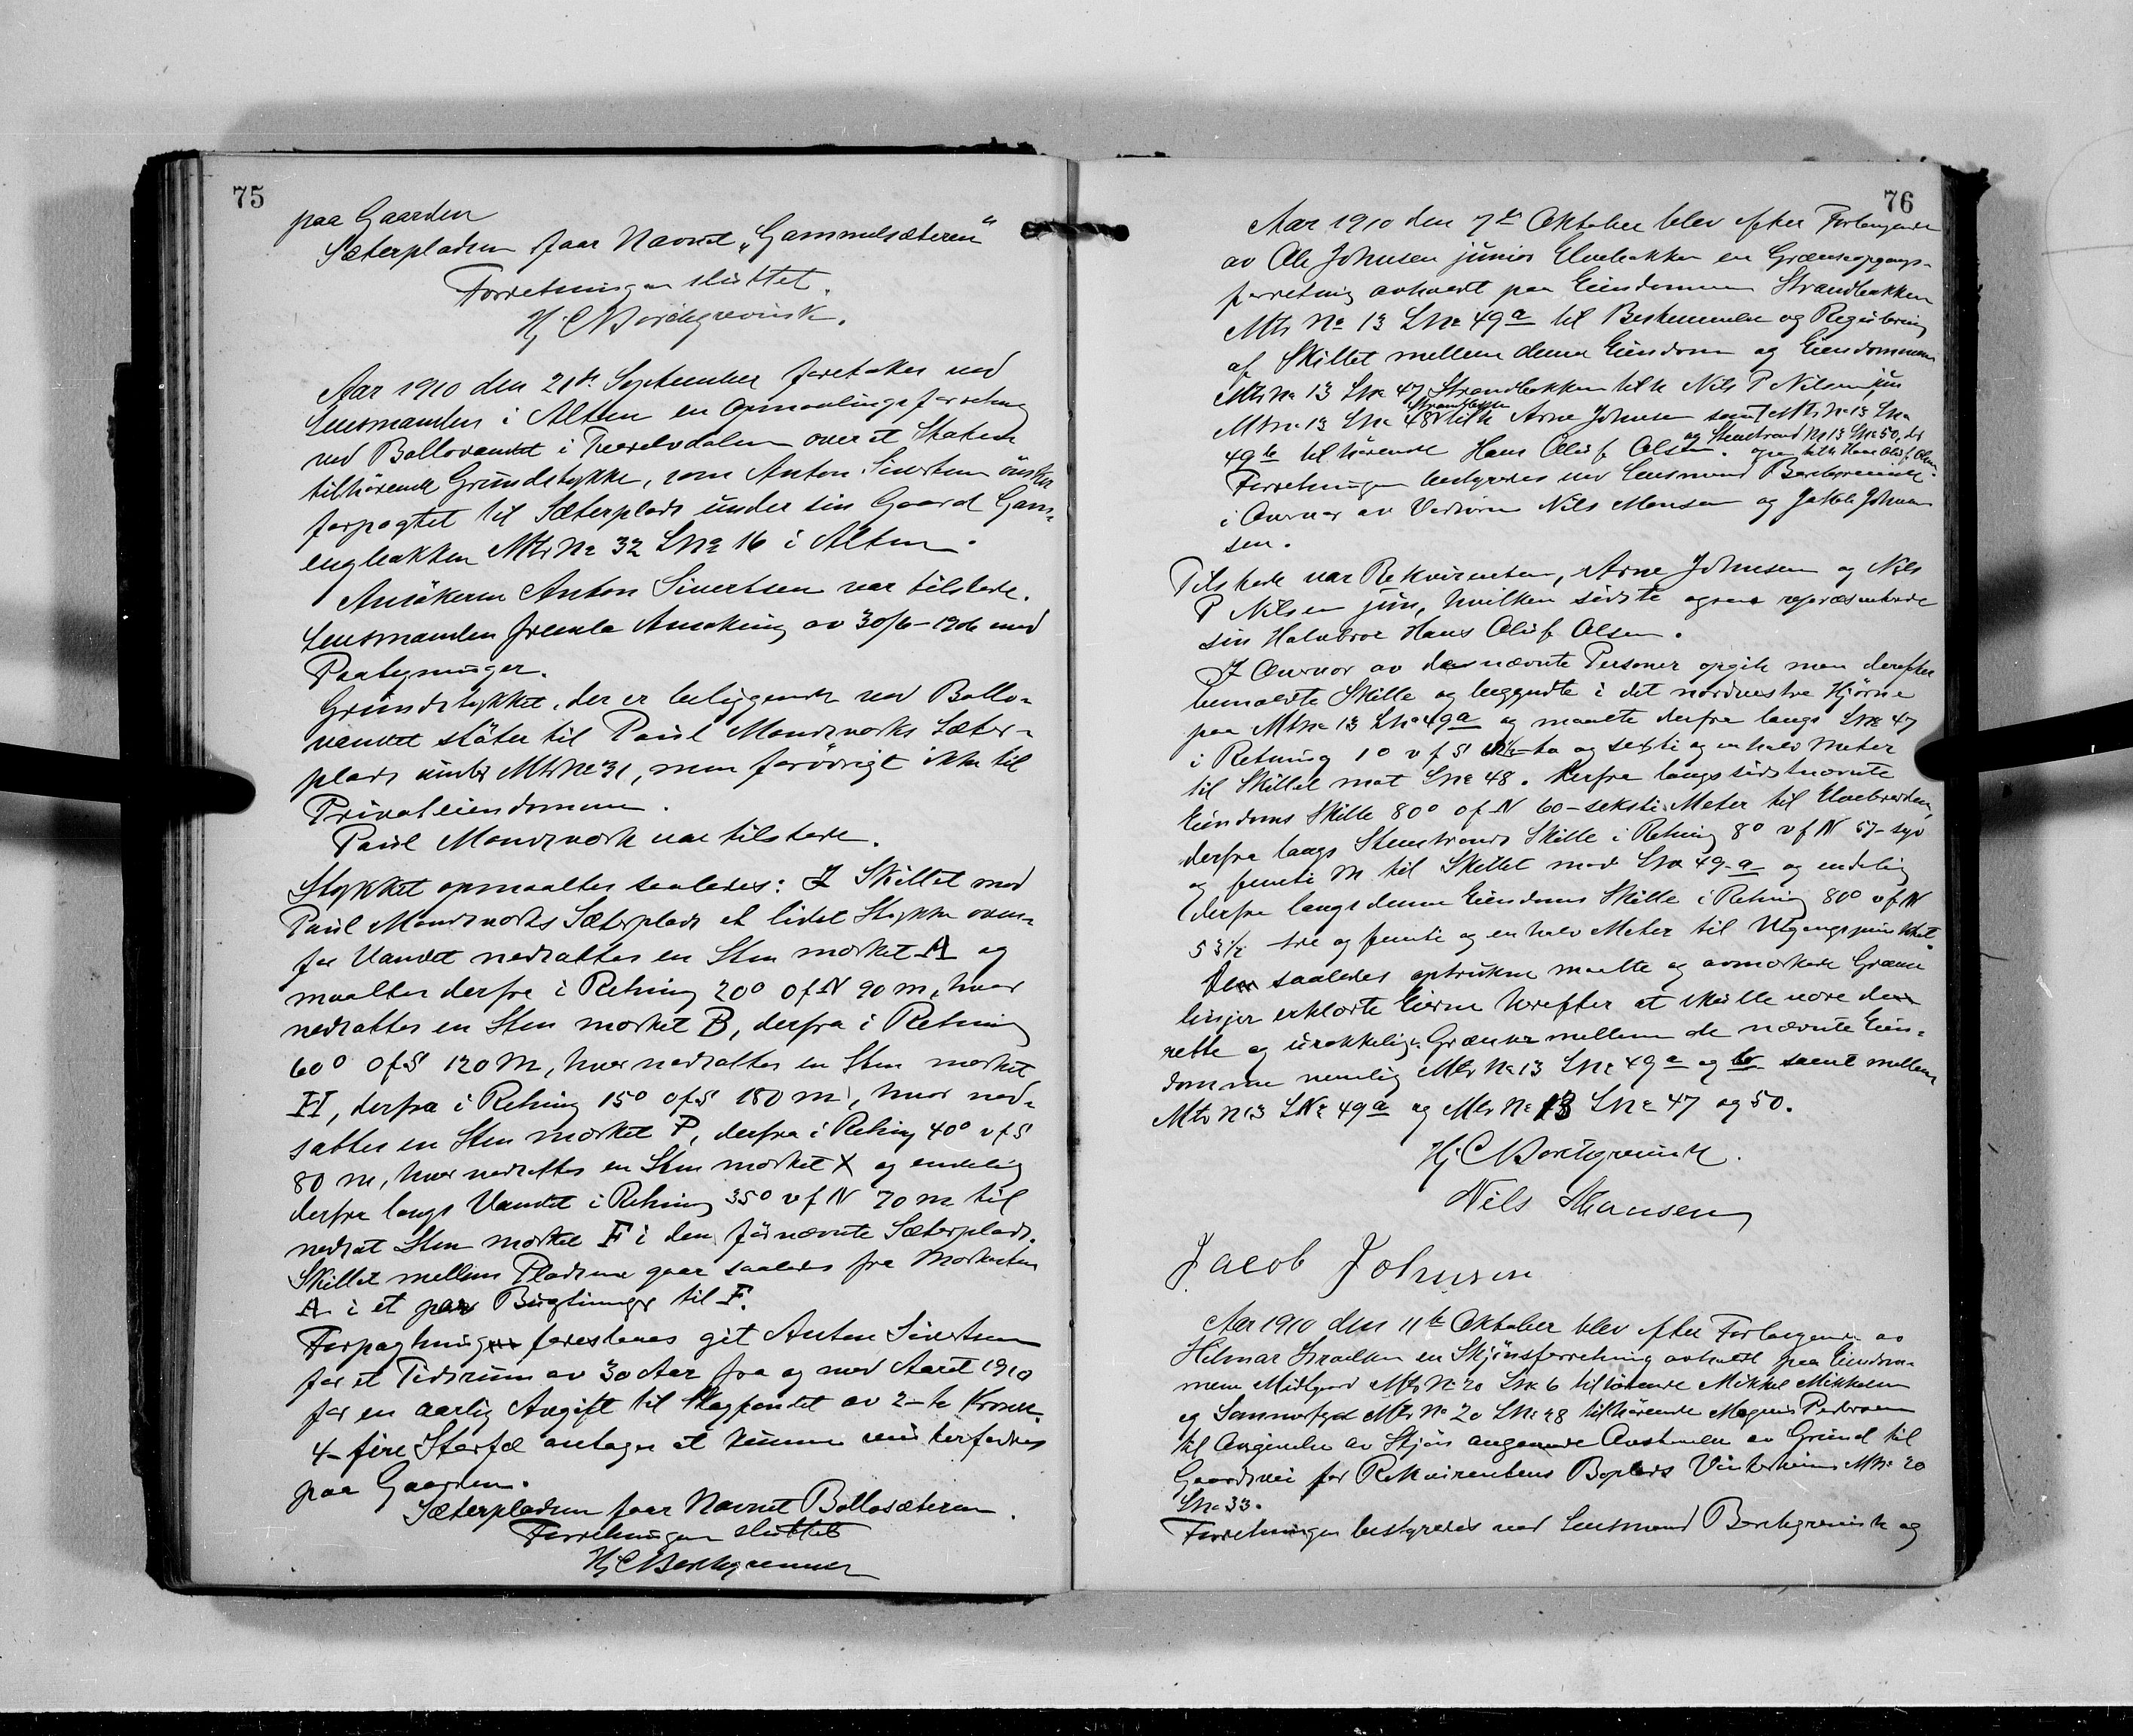 75
paa Gaarden
Sæterpladsen faar Navnet „Gammelsæteren“
Forretningen sluttet.
Hj C Borchgrevink.
Aar 1910 den 21de September foretakes ved
Lensmanden i Alten en Opmaalingsforretning
ved Bollovandet i Tverelvdalen over et Staten
tilhörende Grundstykke, som Anton Sivertsen önsker
forpagtet til Sæterplads under sin Gaard Gam-
engbakken Mtr No 32 LNo 16 i Alten.
Ansökeren Anton Sivertsen var tilstede.
Lensmanden fremla Ansöking av 30/6-1906 med
Paategninger.
Grundstykket, der er beliggende ved Bollo-
vandet stöter til Paul Mondsværks Sæter-
plads under Mtr No 31, men forövrigt ikke til
Privateiendomme.
Paul Mondsværk var tilstede.
Stykket opmaaltes saaledes: I Skillet mod
Paul Mondsværks Sæterplads et lidet Stykke oven-
for Vandet nedsattes en Sten mærket A og
maaltes derfra i Retning 20° ofN 90 m, hvor
nedsattes en Sten mærket B, derfra i Retning
60° ofS 120 m, hvor nedsattes en Sten mærket
H, derfra i Retning 15° ofS 180 m, hvor ned-
sattes en Sten mærket P, derfra i Retning 40° vfS
80 m, hvor nedsattes en Sten mærket X og endelig
derfra langs Vandet i Retning 35° vfN 70 m til
nedsat Sten mærket F i den förnævnte Sæterplads.
Skillet mellem Pladsene gaar saaledes fra Merkesten
A i et par Bugtninger til F.
Forpagtningen forestaaes git Anton Sivertsen
for et Tidsrum av 30 Aar fra og med Aaret 1910
for en aarlig Avgift til Skogfondet av 2-to Kroner.
4-fire Storfæ antages at kunne vinterfødes
paa Gaarden.
Sæterpladsen faar Navnet Bollosæteren.
Forretningen sluttet
Hj C Borchgrevink
76
Aar 1910 den 7de Oktober blev efter Forlangende
av Ole Johnsen junior Elvebakken en Grænseopgangs-
forretning avholdt paa Eiendommen Strandbakken
Mtr No 13 LNo 49a til Bestemmelse og Regulering
af Skillet mellem denne Eiendom og Eiendommene
Mtr No 13 LNo 47 Strandbakken tilh Nils P Nilsen jun
Mtr No 13 LNo 48 Strandbakken tilh Arne Johnsen samt Mtr No 13 LNo
49b tilhörende Hans Oluf Olsen. og Stenstrand No 13 LNo 50, der ogsaa tilh Hans Oluf Olsen.
Forretningen bestyredes ved Lensmand Borchgrevink
i Overvær av Vidnerne Nils Monsen og Jakob Johnsen
sen.
Tilstede var Rekvirenten, Arne Johnsen og Nils
P Nilsen jun, hvilken sidste ogsaa repræsenterede
sin Halvbror Hans Oluf Olsen.
I Overvær av de nævnte Personer opgik man derefter
bemældte Skille og begyndte i det nordvestre Hjörne
paa Mtr No 13 LNo 49a og maalte derfra langs LNo 47
i Retning 1° vfS 62½-to og seksti og en halv Meter
til Skillet mot LNo 48. Derfra langs sidstnævnte
Eiendoms Skille 80° ofN 60-seksti Meter til Elvebredden,
derfra langs Stenstrands Skille i Retning 8° vfN 57-syv
og femti M til Skillet mod LNo 49-a og endelig
derfra langs denne Eiendoms Skille i Retning 80° vfN
53½ tre og femti og en halv Meter til Utgangspunktet.
De saaledes optrukne maalte og avmerkede Grænse
linjer erklærte Eierne herefter at skulle være den
rette og urokkelige Grænse mellem de nævnte Eien-
domme nemlig Mtr No 13 LNo 49a og b samt mellem
Mtr No 13 LNo 49a og Mtr No 13 LNo 47 og 50.
Hj C Borchgrevink.
Nils Monsen
Jacob Johnsen
Aar 1910 den 11te Oktober blev efter Forlangende av
Hilmar Israelsen en Skjönsforretning avholdt paa Eiendom-
mene Midtgaard Mtr No 20 LNo 6 tilhörende Mikkel Mikkelsen
og Sommerfeld Mtr No 20 LNo 48 tilhörende Magnus Pedersen
til Avgivelse av Skjön angaaende Avstaaelse av Grund til
Gaardsvei for Rekvirentens Boplads Vinterheim MNo 20
LNo 33.
Forretningen bestyredes ved Lensmand Borchgrevink og